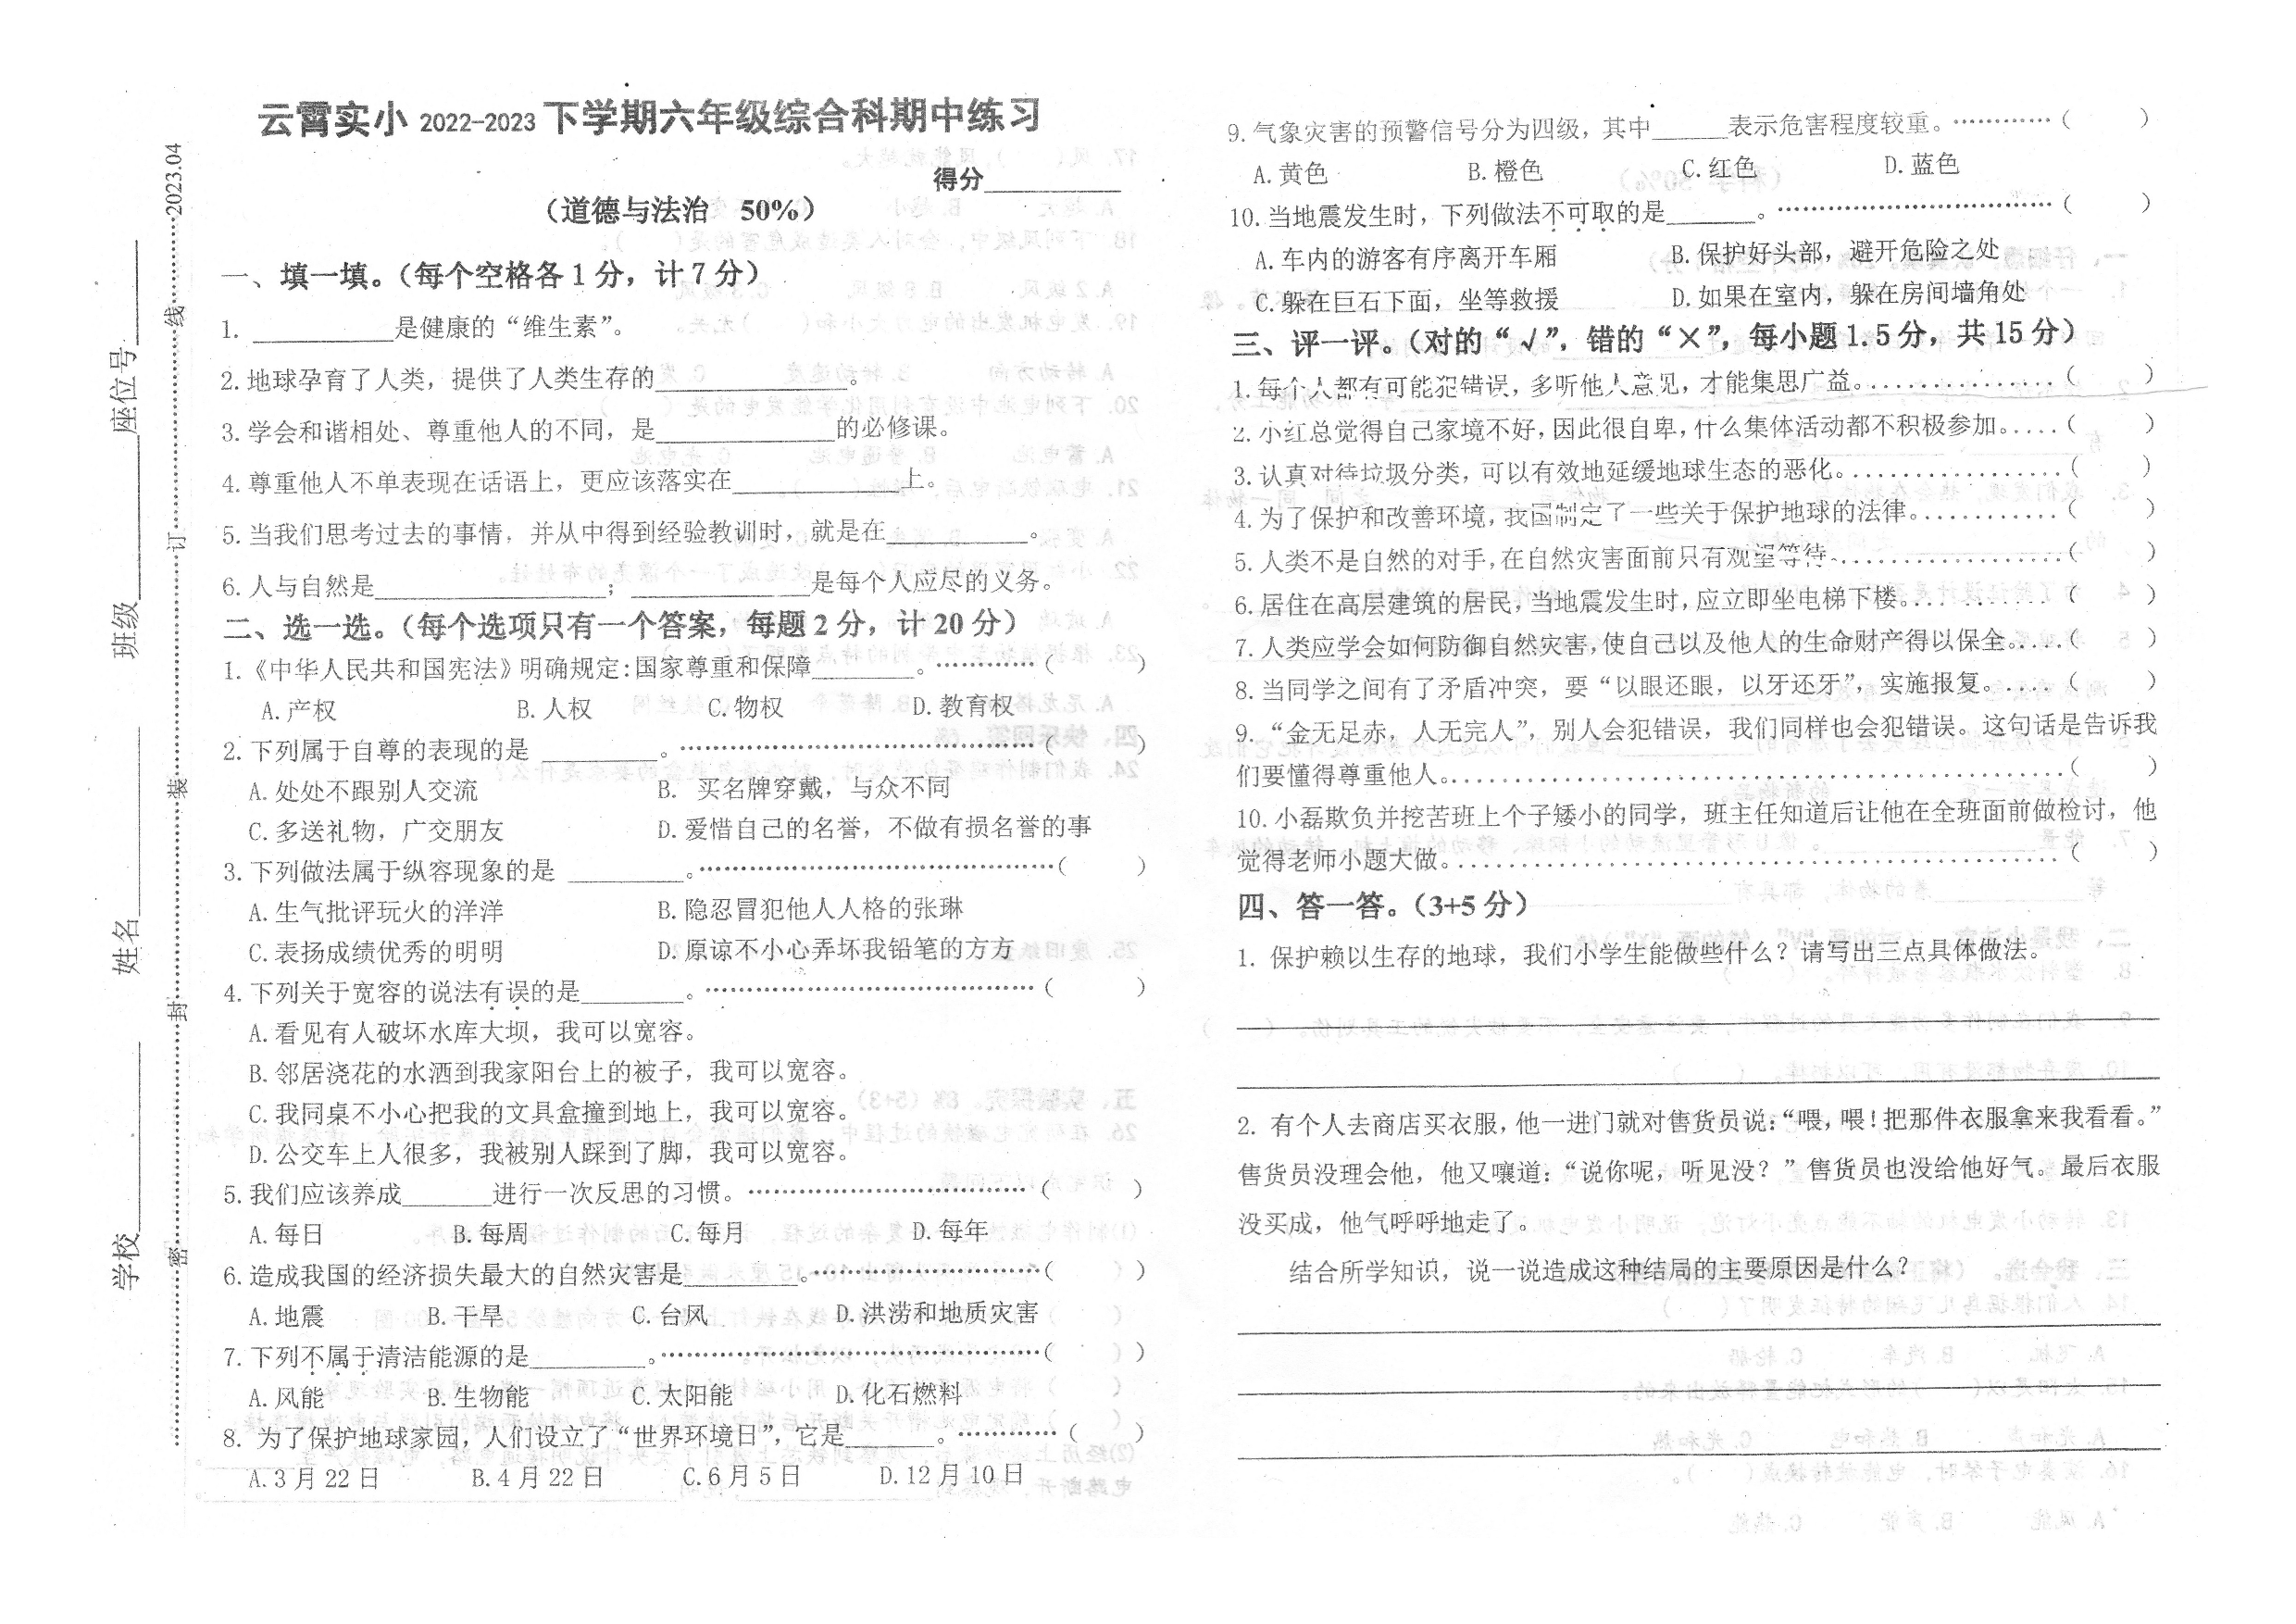 云霄实小 2022-2023 下学期六年级综合科期中练习
得分
（道德与法治　50%）
一、填一填。（每个空格各 1 分，计 7 分）
1. ________是健康的“维生素”。
2.地球孕育了人类，提供了人类生存的________。
3.学会和谐相处、尊重他人的不同，是________的必修课。
4.尊重他人不单表现在话语上，更应该落实在________上。
5.当我们思考过去的事情，并从中得到经验教训时，就是在________。
6.人与自然是________；________是每个人应尽的义务。
二、选一选。（每个选项只有一个答案，每题 2 分，计 20 分）
1.《中华人民共和国宪法》明确规定:国家尊重和保障______。…………（　　）
A.产权　　B.人权　　C.物权　　D.教育权
2.下列属于自尊的表现的是 ______。……………………（　　）
A.处处不跟别人交流　　B. 买名牌穿戴，与众不同
C.多送礼物，广交朋友　　D.爱惜自己的名誉，不做有损名誉的事
3.下列做法属于纵容现象的是 ______。……………………（　　）
A.生气批评玩火的洋洋　　B.隐忍冒犯他人人格的张琳
C.表扬成绩优秀的明明　　D.原谅不小心弄坏我铅笔的方方
4.下列关于宽容的说法有误的是______。……………………（　　）
A.看见有人破坏水库大坝，我可以宽容。
B.邻居浇花的水洒到我家阳台上的被子，我可以宽容。
C.我同桌不小心把我的文具盒撞到地上，我可以宽容。
D.公交车上人很多，我被别人踩到了脚，我可以宽容。
5.我们应该养成______进行一次反思的习惯。……………………（　　）
A.每日　　B.每周　　C.每月　　D.每年
6.造成我国的经济损失最大的自然灾害是______。………………（　　）
A.地震　　B.干旱　　C.台风　　D.洪涝和地质灾害
7.下列不属于清洁能源的是______。……………………（　　）
A.风能　　B.生物能　　C.太阳能　　D.化石燃料
8. 为了保护地球家园，人们设立了“世界环境日”，它是______。…………（　　）
A.3 月 22 日　　B.4 月 22 日　　C.6 月 5 日　　D.12 月 10 日
9.气象灾害的预警信号分为四级，其中______表示危害程度较重。…………（　　）
A.黄色　　B.橙色　　C.红色　　D.蓝色
10.当地震发生时，下列做法不可取的是______。……………………（　　）
A.车内的游客有序离开车厢　　B.保护好头部，避开危险之处
C.躲在巨石下面，坐等救援　　D.如果在室内，躲在房间墙角处
三、评一评。（对的“√”，错的“×”，每小题 1.5 分，共 15 分）
1.每个人都有可能犯错误，多听他人意见，才能集思广益。...............（　　）
2.小红总觉得自己家境不好,因此很自卑,什么集体活动都不积极参加。....（　　）
3.认真对待垃圾分类，可以有效地延缓地球生态的恶化。.................（　　）
4.为了保护和改善环境,我国制定了一些关于保护地球的法律。...........（　　）
5.人类不是自然的对手,在自然灾害面前只有观望等待...................（　　）
6.居住在高层建筑的居民,当地震发生时,应立即坐电梯下楼。............（　　）
7.人类应学会如何防御自然灾害,使自己以及他人的生命财产得以保全。....（　　）
8.当同学之间有了矛盾冲突，要“以眼还眼，以牙还牙”，实施报复。....（　　）
9.“金无足赤，人无完人”，别人会犯错误，我们同样也会犯错误。这句话是告诉我
们要懂得尊重他人。................................................（　　）
10.小磊欺负并挖苦班上个子矮小的同学，班主任知道后让他在全班面前做检讨，他
觉得老师小题大做。................................................（　　）
四、答一答。（3+5 分）
1. 保护赖以生存的地球，我们小学生能做些什么？请写出三点具体做法。
2. 有个人去商店买衣服，他一进门就对售货员说：“喂，喂！把那件衣服拿来我看看。”
售货员没理会他，他又嚷道：“说你呢，听见没？”售货员也没给他好气。最后衣服
没买成，他气呼呼地走了。
结合所学知识，说一说造成这种结局的主要原因是什么？
学校________姓名________班级________座位号________
密……封……装……订……线……2023.04